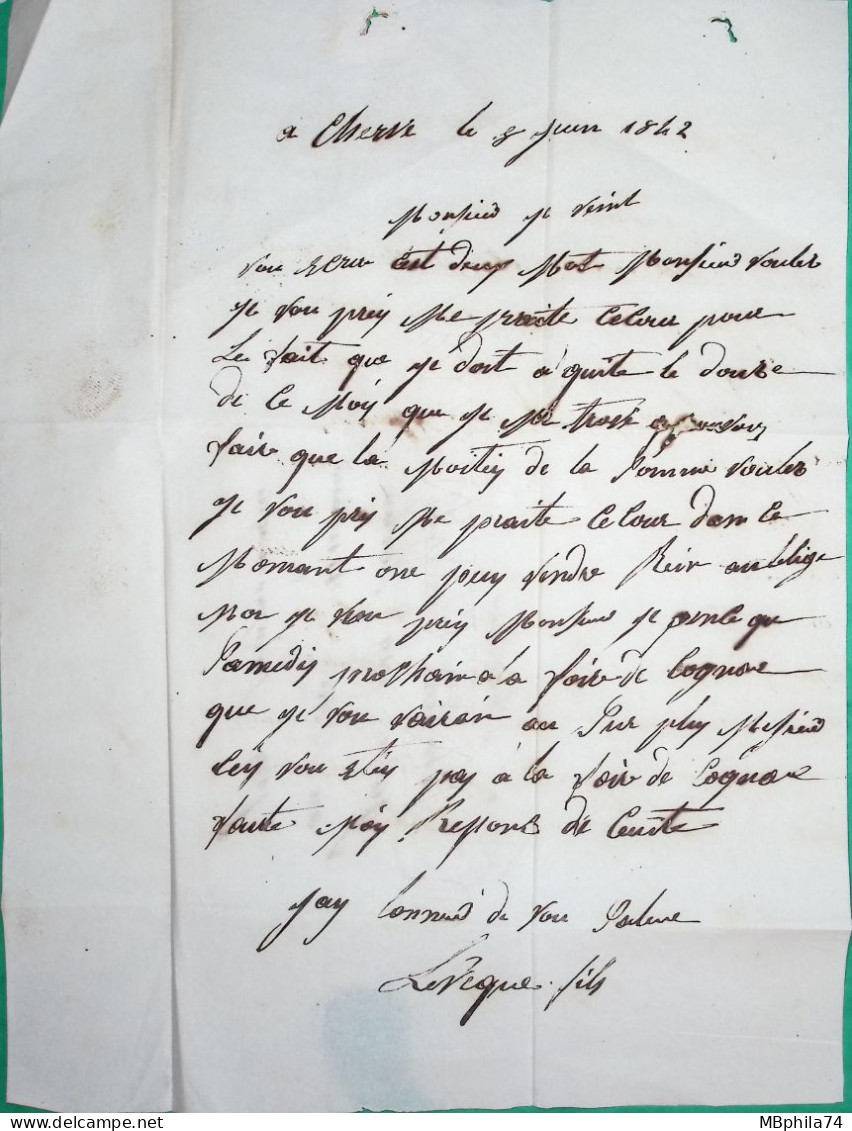 a Cherve le 8 juin 1842
Monsieur je veint
vou ecrir est deux Mot Monsieur voulez
je vou priy Me praite celour pour
Le fait que je doit a quite le douze
de ce Moy que je Me trove
fair que la Moitiey de la somme voulez
je vou priy Me praite celour dom ce
Momant one peuy vendre Rein oublige
Moi je vou priy Monsieur je pence que
Samedis prochain a la foire de Cognac
que je vou vairai au sur pluy Mosieur
ciy vou etiy pas à la foir de Cognac
faite Moy Repons de cuite
Jay lonneur de vou salue
Leveque fils
MBphila74